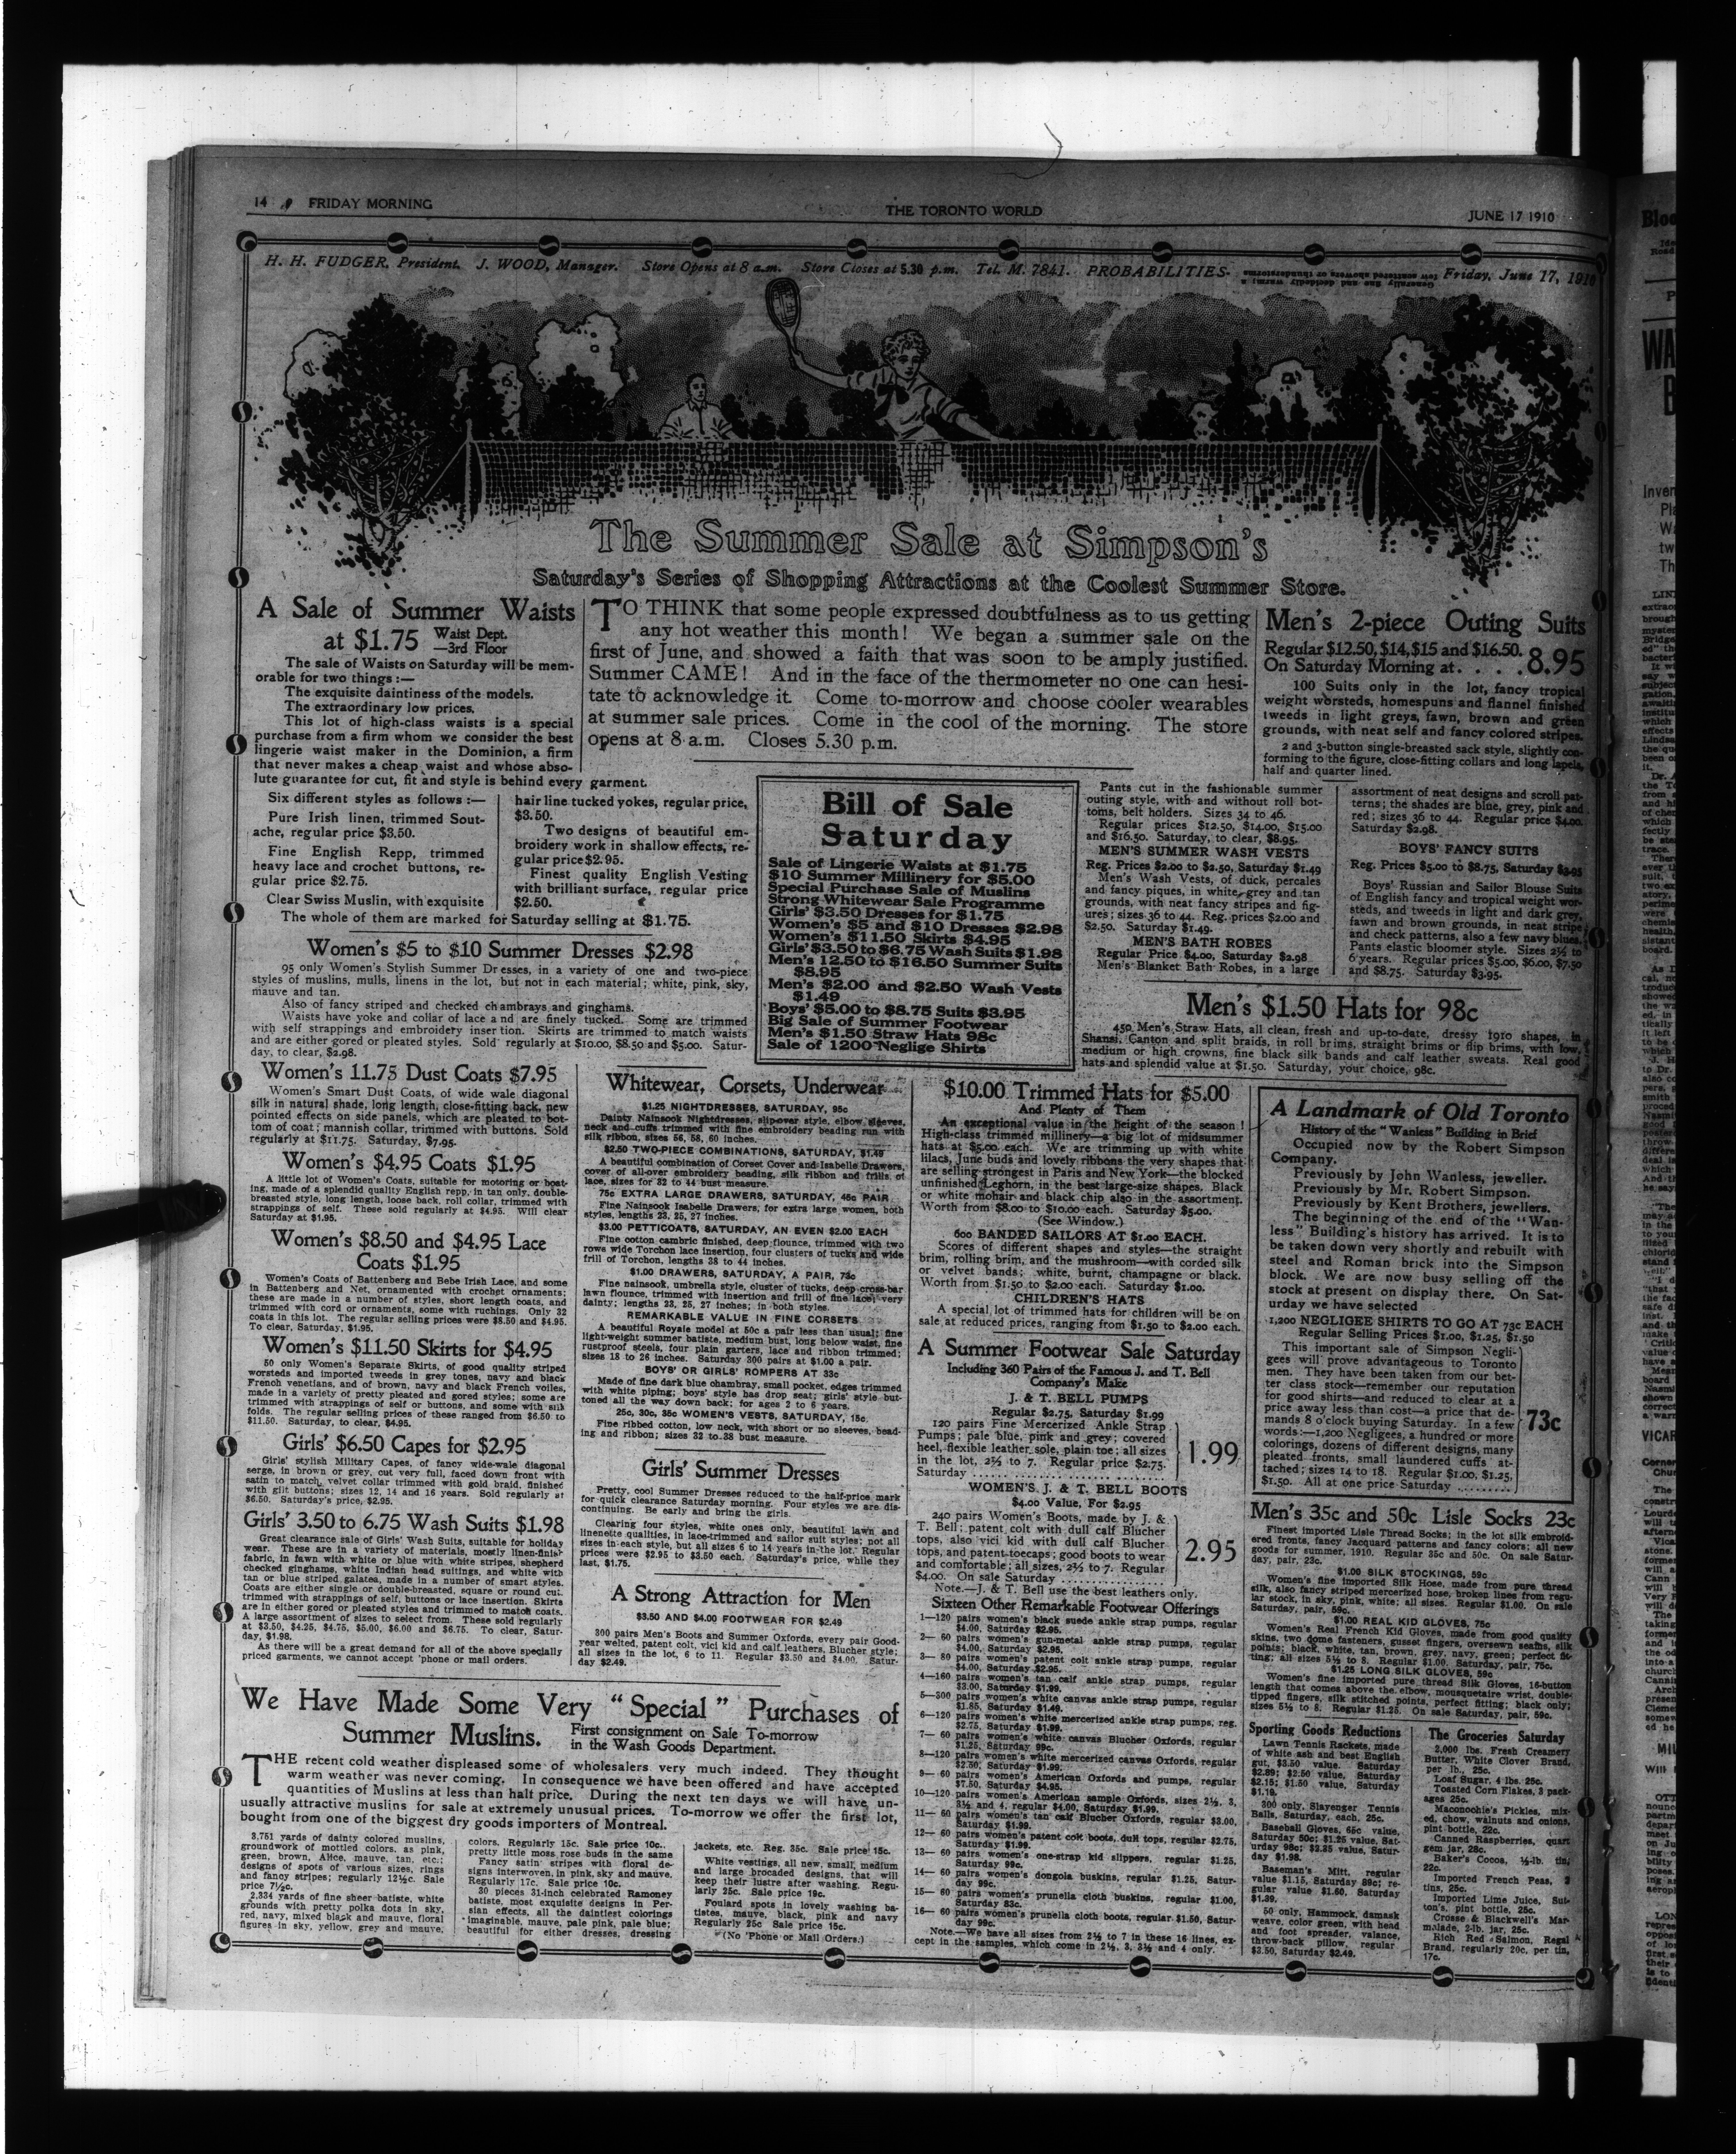 14 FRIDAY MORNING
THE TORONTO WORLD
JUNE 17 1910
H. H. FUDGER, President. J. WOOD, Manager. Store Opens at 8 a.m. Store Closes at 5.30 p.m. Tel. M. 7841. PROBABILITIES- Generally fine and decidedly warm; a few scattered showers or thunderstorms Friday, June 17, 1910
The Summer Sale at Simpson's
Saturday's Series of Shopping Attractions at the Coolest Summer Store.
A Sale of Summer Waists
at $1.75 Waist Dept.
—3rd Floor
The sale of Waists on Saturday will be mem-
orable for two things:—
The exquisite daintiness of the models.
The extraordinary low prices.
This lot of high-class waists is a special
purchase from a firm whom we consider the best
lingerie waist maker in the Dominion, a firm
that never makes a cheap waist and whose abso-
lute guarantee for cut, fit and style is behind every garment.
Six different styles as follows:—
Pure Irish linen, trimmed Sout-
ache, regular price $3.50.
Fine English Repp, trimmed
heavy lace and crochet buttons, re-
gular price $2.75.
Clear Swiss Muslin, with exquisite
hair line tucked yokes, regular price,
$3.50.
Two designs of beautiful em-
broidery work in shallow effects, re-
gular price $2.95.
Finest quality English Vesting
with brilliant surface, regular price
$2.50.
The whole of them are marked for Saturday selling at $1.75.
TO THINK that some people expressed doubtfulness as to us getting
any hot weather this month! We began a summer sale on the
first of June, and showed a faith that was soon to be amply justified.
Summer CAME! And in the face of the thermometer no one can hesi-
tate to acknowledge it. Come to-morrow and choose cooler wearables
at summer sale prices. Come in the cool of the morning. The store
opens at 8 a.m. Closes 5.30 p.m.
Men's 2-piece Outing Suits
Regular $12.50, $14, $15 and $16.50.
On Saturday Morning at. . . . 8.95
100 Suits only in the lot, fancy tropical
weight worsteds, homespuns and flannel finished
tweeds in light greys, fawn, brown and green
grounds, with neat self and fancy colored stripes.
2 and 3-button single-breasted sack style, slightly con-
forming to the figure, close-fitting collars and long lapels,
half and quarter lined.
Pants cut in the fashionable summer
outing style, with and without roll bot-
toms, belt holders. Sizes 34 to 46.
Regular prices $12.50, $14.00, $15.00
and $16.50. Saturday, to clear, $8.95.
MEN'S SUMMER WASH VESTS
Reg. Prices $2.00 to $2.50, Saturday $1.49
Men's Wash Vests, of duck, percales
and fancy piques, in white, grey and tan
grounds, with neat fancy stripes and fig-
ures; sizes 36 to 44. Reg. prices $2.00 and
$2.50. Saturday $1.49.
MEN'S BATH ROBES
Regular Price $4.00, Saturday $2.98
Men's Blanket Bath Robes, in a large
assortment of neat designs and scroll pat-
terns; the shades are blue, grey, pink and
red; sizes 36 to 44. Regular price $4.00.
Saturday $2.98.
BOYS' FANCY SUITS
Reg. Prices $5.00 to $8.75, Saturday $3.95
Boys' Russian and Sailor Blouse Suits
of English fancy and tropical weight wor-
steds, and tweeds in light and dark grey,
fawn and brown grounds, in neat stripe
and check patterns, also a few navy blues.
Pants elastic bloomer style. Sizes 2½ to
6 years. Regular prices $5.00, $6.00, $7.50
and $8.75. Saturday $3.95.
Bill of Sale
Saturday
Sale of Lingerie Waists at $1.75
$10 Summer Millinery for $5.00
Special Purchase Sale of Muslins
Strong Whitewear Sale Programme
Girls' $3.50 Dresses for $1.75
Women's $5 and $10 Dresses $2.98
Women's $11.50 Skirts $4.95
Girls' $3.50 to $6.75 Wash Suits $1.98
Men's 12.50 to $16.50 Summer Suits
$8.95
Men's $2.00 and $2.50 Wash Vests
$1.49
Boys' $5.00 to $8.75 Suits $3.95
Big Sale of Summer Footwear
Men's $1.50 Straw Hats 98c
Sale of 1200 Neglige Shirts
Men's $1.50 Hats for 98c
450 Men's Straw Hats, all clean, fresh and up-to-date, dressy 1910 shapes, in
Shansi, Canton and split braids, in roll brims, straight brims or flip brims, with low,
medium or high crowns, fine black silk bands and calf leather sweats. Real good
hats and splendid value at $1.50. Saturday, your choice, 98c.
Women's $5 to $10 Summer Dresses $2.98
95 only Women's Stylish Summer Dresses, in a variety of one and two-piece
styles of muslins, mulls, linens in the lot, but not in each material; white, pink, sky,
mauve and tan.
Also of fancy striped and checked chambrays and ginghams.
Waists have yoke and collar of lace and are finely tucked. Some are trimmed
with self strappings and embroidery insertion. Skirts are trimmed to match waists
and are either gored or pleated styles. Sold regularly at $10.00, $8.50 and $5.00. Satur-
day, to clear, $2.98.
Women's 11.75 Dust Coats $7.95
Women's Smart Dust Coats, of wide wale diagonal
silk in natural shade, long length, close-fitting back, new
pointed effects on side panels, which are pleated to bot-
tom of coat; mannish collar, trimmed with buttons. Sold
regularly at $11.75. Saturday, $7.95.
Women's $4.95 Coats $1.95
A little lot of Women's Coats, suitable for motoring or boat-
ing, made of a splendid quality English repp, in tan only, double-
breasted style, long length, loose back, roll collar, trimmed with
strappings of self. These sold regularly at $4.95. Will clear
Saturday at $1.95.
Women's $8.50 and $4.95 Lace
Coats $1.95
Women's Coats of Battenberg and Bebe Irish Lace, and some
in Battenberg and Net, ornamented with crochet ornaments;
these are made in a number of styles, short length coats, and
trimmed with cord or ornaments, some with ruchings. Only 32
coats in this lot. The regular selling prices were $8.50 and $4.95.
To clear, Saturday, $1.95.
Women's $11.50 Skirts for $4.95
50 only Women's Separate Skirts, of good quality striped
worsteds and imported tweeds in grey tones, navy and black
French venetians, and of brown, navy and black French voiles,
made in a variety of pretty pleated and gored styles; some are
trimmed with strappings of self or buttons, and some with silk
folds. The regular selling prices of these ranged from $6.50 to
$11.50. Saturday, to clear, $4.95.
Girls' $6.50 Capes for $2.95
Girls' stylish Military Capes, of fancy wide-wale diagonal
serge, in brown or grey, cut very full, faced down front with
satin to match, velvet collar trimmed with gold braid, finished
with gilt buttons; sizes 12, 14 and 16 years. Sold regularly at
$6.50. Saturday's price, $2.95.
Girls' 3.50 to 6.75 Wash Suits $1.98
Great clearance sale of Girls' Wash Suits, suitable for holiday
wear. These are in a variety of materials, mostly linen-finish
fabric, in fawn with white or blue with white stripes, shepherd
checked ginghams, white Indian head suitings, and white with
tan or blue striped galatea, made in a number of smart styles.
Coats are either single or double-breasted, square or round cut,
trimmed with strappings of self, buttons or lace insertion. Skirts
are in either gored or pleated styles and trimmed to match coats.
A large assortment of sizes to select from. These sold regularly
at $3.50, $4.25, $4.75, $5.00, $6.00 and $6.75. To clear, Satur-
day, $1.98.
As there will be a great demand for all of the above specially
priced garments, we cannot accept 'phone or mail orders.
Whitewear, Corsets, Underwear
$1.25 NIGHTDRESSES, SATURDAY, 95c
Dainty Nainsook Nightdresses, slipover style, elbow sleeves,
neck and cuffs trimmed with fine embroidery beading run with
silk ribbon, sizes 56, 58, 60 inches.
$2.50 TWO-PIECE COMBINATIONS, SATURDAY, $1.49
A beautiful combination of Corset Cover and Isabelle Drawers,
cover of all-over embroidery beading, silk ribbon and frills of
lace, sizes for 32 to 44 bust measure.
75c EXTRA LARGE DRAWERS, SATURDAY, 45c PAIR
Fine Nainsook Isabelle Drawers, for extra large women, both
styles, lengths 23, 25, 27 inches.
$3.00 PETTICOATS, SATURDAY, AN EVEN $2.00 EACH
Fine cotton cambric finished, deep flounce, trimmed with two
rows wide Torchon lace insertion, four clusters of tucks and wide
frill of Torchon, lengths 38 to 44 inches.
$1.00 DRAWERS, SATURDAY, A PAIR, 73c
Fine nainsook, umbrella style, cluster of tucks, deep cross-bar
lawn flounce, trimmed with insertion and frill of fine lace; very
dainty; lengths 23, 25, 27 inches; in both styles.
REMARKABLE VALUE IN FINE CORSETS
A beautiful Royale model at 50c a pair less than usual; fine
light-weight summer batiste, medium bust, long below waist, fine
rustproof steels, four plain garters, lace and ribbon trimmed;
sizes 18 to 26 inches. Saturday 300 pairs at $1.00 a pair.
BOYS' OR GIRLS' ROMPERS AT 33c
Made of fine dark blue chambray, small pocket, edges trimmed
with white piping; boys' style has drop seat; girls' style but-
toned all the way down back; for ages 2 to 6 years.
25c, 30c, 35c WOMEN'S VESTS, SATURDAY, 15c.
Fine ribbed cotton, low neck, with short or no sleeves, bead-
ing and ribbon; sizes 32 to 38 bust measure.
Girls' Summer Dresses
Pretty, cool Summer Dresses reduced to the half-price mark
for quick clearance Saturday morning. Four styles we are dis-
continuing. Be early and bring the girls.
Clearing four styles, white ones only, beautiful lawn and
linenette qualities, in lace-trimmed and sailor suit styles; not all
sizes in each style, but all sizes 6 to 14 years in the lot. Regular
prices were $2.95 to $3.50 each. Saturday's price, while they
last, $1.75.
A Strong Attraction for Men
$3.50 AND $4.00 FOOTWEAR FOR $2.49
300 pairs Men's Boots and Summer Oxfords, every pair Good-
year welted, patent colt, vici kid and calf leathers, Blucher style;
all sizes in the lot, 6 to 11. Regular $3.50 and $4.00. Satur-
day $2.49.
We Have Made Some Very "Special" Purchases of
Summer Muslins. First consignment on Sale To-morrow
in the Wash Goods Department.
THE recent cold weather displeased some of wholesalers very much indeed. They thought
warm weather was never coming. In consequence we have been offered and have accepted
quantities of Muslins at less than half price. During the next ten days we will have un-
usually attractive muslins for sale at extremely unusual prices. To-morrow we offer the first lot,
bought from one of the biggest dry goods importers of Montreal.
3,751 yards of dainty colored muslins,
groundwork of mottled colors, as pink,
green, brown, Alice, mauve, tan, etc.;
designs of spots of various sizes, rings
and fancy stripes; regularly 12½c. Sale
price 7½c.
2,334 yards of fine sheer batiste, white
grounds with pretty polka dots in sky,
red, navy, mixed black and mauve, floral
figures in sky, yellow, grey and mauve,
colors. Regularly 15c. Sale price 10c.
pretty little moss rose buds in the same
Fancy satin stripes with floral de-
signs interwoven, in pink, sky and mauve.
Regularly 17c. Sale price 10c.
30 pieces 31-inch celebrated Ramoney
batiste, most exquisite designs in Per-
sian effects, all the daintiest colorings
imaginable, mauve, pale pink, pale blue;
beautiful for either dresses, dressing
jackets, etc. Reg. 35c. Sale price 15c.
White vestings, all new, small, medium
and large brocaded designs, that will
keep their lustre after washing. Regu-
larly 25c. Sale price 19c.
Foulard spots in lovely washing ba-
tistes, mauve, black, pink and navy
Regularly 25c Sale price 15c.
(No 'Phone or Mail Orders.)
$10.00 Trimmed Hats for $5.00
And Plenty of Them
An exceptional value in the height of the season!
High-class trimmed millinery—a big lot of midsummer
hats at $5.00 each. We are trimming up with white
lilacs, June buds and lovely ribbons the very shapes that
are selling strongest in Paris and New York—the blocked
unfinished Leghorn, in the best large-size shapes. Black
or white mohair and black chip also in the assortment.
Worth from $8.00 to $10.00 each. Saturday $5.00.
(See Window.)
600 BANDED SAILORS AT $1.00 EACH.
Scores of different shapes and styles—the straight
brim, rolling brim, and the mushroom—with corded silk
or velvet bands; white, burnt, champagne or black.
Worth from $1.50 to $2.00 each. Saturday $1.00.
CHILDREN'S HATS
A special lot of trimmed hats for children will be on
sale at reduced prices, ranging from $1.50 to $2.00 each.
A Summer Footwear Sale Saturday
Including 360 Pairs of the Famous J. and T. Bell
Company's Make
J. & T. BELL PUMPS
Regular $2.75, Saturday $1.99
120 pairs Fine Mercerized Ankle Strap
Pumps; pale blue, pink and grey; covered
heel, flexible leather sole, plain toe; all sizes
in the lot, 2½ to 7. Regular price $2.75.
Saturday ......
1.99
WOMEN'S J. & T. BELL BOOTS
$4.00 Value, For $2.95
240 pairs Women's Boots, made by J. &
T. Bell; patent colt with dull calf Blucher
tops, also vici kid with dull calf Blucher
tops, and patent toecaps; good boots to wear
and comfortable; all sizes, 2½ to 7. Regular
$4.00. On sale Saturday ......
2.95
Note.—J. & T. Bell use the best leathers only.
Sixteen Other Remarkable Footwear Offerings
1—120 pairs women's black suede ankle strap pumps, regular
$4.00, Saturday $2.95.
2— 60 pairs women's gun-metal ankle strap pumps, regular
$4.00, Saturday $2.95.
3— 80 pairs women's patent colt ankle strap pumps, regular
$4.00, Saturday $2.95.
4—160 pairs women's tan calf ankle strap pumps, regular
$3.00, Saturday $1.99.
5—300 pairs women's white canvas ankle strap pumps, regular
$1.85, Saturday $1.49.
6—120 pairs women's white mercerized ankle strap pumps, reg.
$2.75, Saturday $1.99.
7— 60 pairs women's white canvas Blucher Oxfords, regular
$1.25, Saturday 99c.
8—120 pairs women's white mercerized canvas Oxfords, regular
$2.50, Saturday $1.99.
9— 60 pairs women's American Oxfords and pumps, regular
$7.50, Saturday $4.95.
10—120 pairs women's American sample Oxfords, sizes 2½, 3,
3½ and 4, regular $4.00, Saturday $1.99.
11— 60 pairs women's tan calf Blucher Oxfords, regular $3.00,
Saturday $1.99.
12— 60 pairs women's patent colt boots, dull tops, regular $2.75,
Saturday $1.99.
13— 60 pairs women's one-strap kid slippers, regular $1.25,
Saturday 99c.
14— 60 pairs women's dongola buskins, regular $1.25, Satur-
day 99c.
15— 60 pairs women's prunella cloth buskins, regular $1.00,
Saturday 83c.
16— 60 pairs women's prunella cloth boots, regular $1.50, Satur-
day 99c.
Note.—We have all sizes from 2½ to 7 in these 16 lines, ex-
cept in the samples, which come in 2½, 3, 3½ and 4 only.
A Landmark of Old Toronto
History of the "Wanless" Building in Brief
Occupied now by the Robert Simpson
Company.
Previously by John Wanless, jeweller.
Previously by Mr. Robert Simpson.
Previously by Kent Brothers, jewellers.
The beginning of the end of the "Wan-
less" Building's history has arrived. It is to
be taken down very shortly and rebuilt with
steel and Roman brick into the Simpson
block. We are now busy selling off the
stock at present on display there. On Sat-
urday we have selected
1,200 NEGLIGEE SHIRTS TO GO AT 73c EACH
Regular Selling Prices $1.00, $1.25, $1.50
This important sale of Simpson Negli-
gees will prove advantageous to Toronto
men. They have been taken from our bet-
ter class stock—remember our reputation
for good shirts—and reduced to clear at a
price away less than cost—a price that de-
mands 8 o'clock buying Saturday. In a few
words:—1,200 Negligees, a hundred or more
colorings, dozens of different designs, many
pleated fronts, small laundered cuffs at-
tached; sizes 14 to 18. Regular $1.00, $1.25,
$1.50. All at one price Saturday ......
73c
Men's 35c and 50c Lisle Socks 23c
Finest imported Lisle Thread Socks; in the lot silk embroid-
ered fronts, fancy Jacquard patterns and fancy colors; all new
goods for summer, 1910. Regular 35c and 50c. On sale Satur-
day, pair, 23c.
$1.00 SILK STOCKINGS, 59c
Women's fine imported Silk Hose, made from pure thread
silk, also fancy striped mercerized hose, broken lines from regu-
lar stock, in sky, pink, white; all sizes. Regular $1.00. On sale
Saturday, pair, 59c.
$1.00 REAL KID GLOVES, 75c
Women's Real French Kid Gloves, made from good quality
skins, two dome fasteners, gusset fingers, oversewn seams, silk
points; black, white, tan, brown, grey, navy, green; perfect fit-
ting; all sizes 5½ to 8. Regular $1.00. Saturday, pair, 75c.
$1.25 LONG SILK GLOVES, 59c
Women's fine imported pure thread Silk Gloves, 16-button
length that comes above the elbow, mousquetaire wrist, double-
tipped fingers, silk stitched points, perfect fitting; black only;
sizes 5½ to 8. Regular $1.25. On sale Saturday, pair, 59c.
Sporting Goods Reductions
Lawn Tennis Rackets, made
of white ash and best English
gut, $3.50 value. Saturday
$2.89; $2.50 value, Saturday
$2.15; $1.50 value, Saturday
$1.19.
300 only, Slayenger Tennis
Balls, Saturday, each, 25c.
Baseball Gloves, 65c value,
Saturday 50c; $1.25 value, Sat-
urday 98c; $2.25 value, Satur-
day $1.98.
Baseman's Mitt, regular
value $1.15, Saturday 89c; re-
gular value $1.60, Saturday
$1.39.
50 only, Hammock, damask
weave, color green, with head
and foot spreader, valance,
throw-back pillow, regular
$3.50, Saturday $2.49.
The Groceries Saturday
2,000 lbs. Fresh Creamery
Butter, White Clover Brand,
per lb., 25c.
Loaf Sugar, 4 lbs. 25c.
Toasted Corn Flakes, 3 pack-
ages 25c.
Maconochie's Pickles, mix-
ed, chow, walnuts and onions,
pint bottle, 22c.
Canned Raspberries, quart
gem jar, 28c.
Baker's Cocoa, ½-lb. tin,
22c.
Imported French Peas, 2
tins, 25c.
Imported Lime Juice, Sut-
ton's, pint bottle, 25c.
Crosse & Blackwell's Mar-
malade, 2-lb. jar, 25c.
Rich Red Salmon, Regal
Brand, regularly 20c. per tin,
17c.